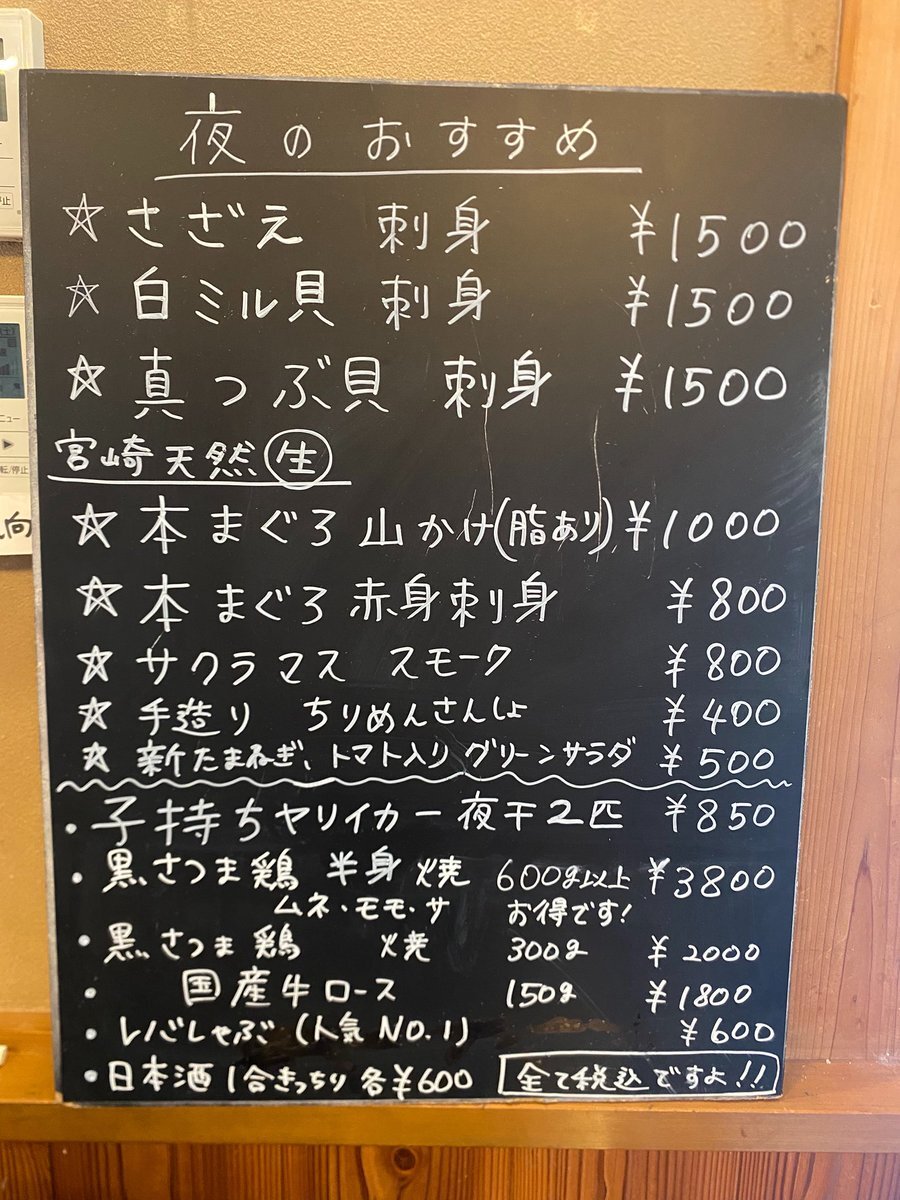 夜のおすすめ
☆さざえ 刺身 ¥1500
☆白ミル貝 刺身 ¥1500
☆真つぶ貝 刺身 ¥1500
宮崎天然 生
☆本まぐろ 山かけ(脂あり) ¥1000
☆本まぐろ 赤身刺身 ¥800
☆サクラマス スモーク ¥800
☆手造り ちりめんさんしょ ¥400
☆新たまねぎ、トマト入り グリーンサラダ ¥500
・子持ちヤリイカ一夜干2匹 ¥850
・黒さつま鶏 半身焼 600g以上 ¥3800
ムネ・モモ・サ お得です!
・黒さつま鶏 焼 300g ¥2000
・国産牛ロース 150g ¥1800
・レバしゃぶ (人気NO.1) ¥600
・日本酒1合きっちり各¥600 全て税込ですよ!!
ニュー
転/停止
停止
向